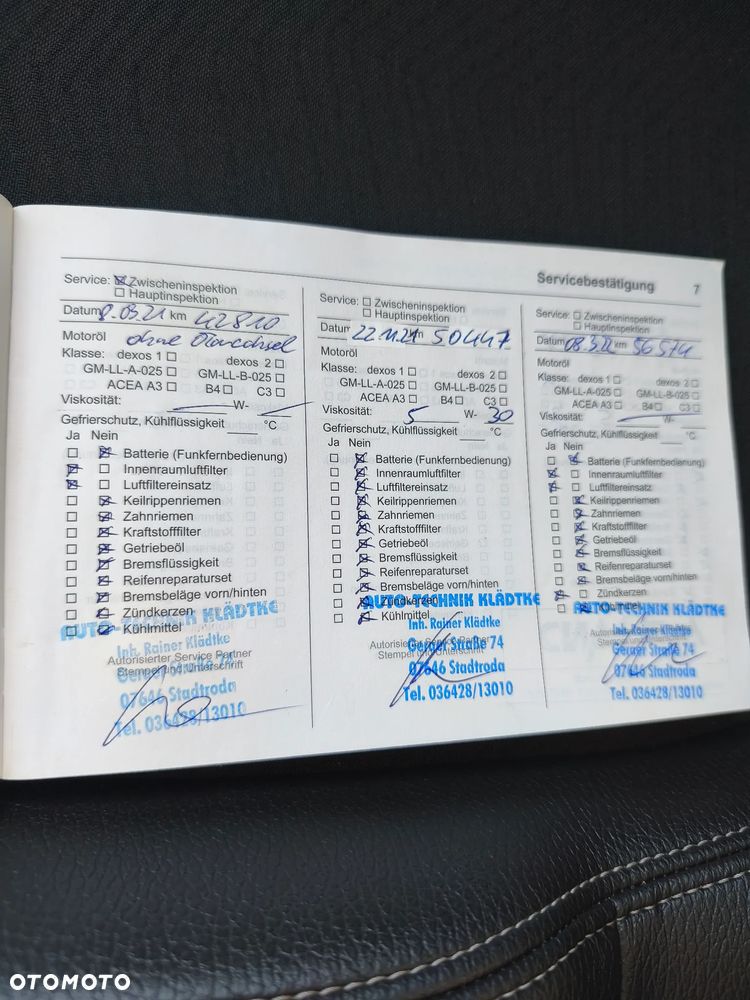 Servicebestätigung 7
Service: ☒ Zwischeninspektion
☐ Hauptinspektion
Datum 8.03.21 km 42810
Motoröl ohne Ölwechsel
Klasse: dexos 1 ☐ dexos 2 ☐
☐ GM-LL-A-025 ☐ GM-LL-B-025 ☐
ACEA A3 ☐ B4 ☐ C3 ☐
Viskosität: W-
Gefrierschutz, Kühlflüssigkeit °C
Ja Nein
☐ ☒ Batterie (Funkfernbedienung)
☒ ☐ Innenraumluftfilter
☒ ☐ Luftfiltereinsatz
☐ ☒ Keilrippenriemen
☐ ☒ Zahnriemen
☐ ☒ Kraftstofffilter
☐ ☒ Getriebeöl
☐ ☒ Bremsflüssigkeit
☐ ☒ Reifenreparaturset
☐ ☒ Bremsbeläge vorn/hinten
☐ ☒ Zündkerzen
☐ ☒ Kühlmittel
AUTO-TECHNIK KLÄDTKE
Inh. Rainer Klädtke
Autorisierter Service Partner
Stempel und Unterschrift
Geraer Straße 74
07646 Stadtroda
Tel. 036428/13010
Service: ☐ Zwischeninspektion
☐ Hauptinspektion
Datum 22.11.21 km 50447
Motoröl
Klasse: dexos 1 ☐ dexos 2 ☐
☐ GM-LL-A-025 ☐ GM-LL-B-025 ☐
ACEA A3 ☐ B4 ☐ C3 ☐
Viskosität: 5 W- 30
Gefrierschutz, Kühlflüssigkeit °C
Ja Nein
☐ ☒ Batterie (Funkfernbedienung)
☐ ☒ Innenraumluftfilter
☐ ☒ Luftfiltereinsatz
☐ ☒ Keilrippenriemen
☐ ☒ Zahnriemen
☐ ☒ Kraftstofffilter
☐ ☒ Getriebeöl
☐ ☒ Bremsflüssigkeit
☐ ☒ Reifenreparaturset
☐ ☒ Bremsbeläge vorn/hinten
☐ ☒ Zündkerzen
☐ ☒ Kühlmittel
AUTO-TECHNIK KLÄDTKE
Inh. Rainer Klädtke
Autorisierter Service Partner
Stempel und Unterschrift
Geraer Straße 74
07646 Stadtroda
Tel. 036428/13010
Service: ☐ Zwischeninspektion
☐ Hauptinspektion
Datum 08.3.22 km 56574
Motoröl
Klasse: dexos 1 ☐ dexos 2 ☐
☐ GM-LL-A-025 ☐ GM-LL-B-025 ☐
ACEA A3 ☐ B4 ☐ C3 ☐
Viskosität: W-
Gefrierschutz, Kühlflüssigkeit °C
Ja Nein
☐ ☒ Batterie (Funkfernbedienung)
☒ ☐ Innenraumluftfilter
☒ ☐ Luftfiltereinsatz
☐ ☒ Keilrippenriemen
☐ ☒ Zahnriemen
☐ ☒ Kraftstofffilter
☐ ☒ Getriebeöl
☐ ☒ Bremsflüssigkeit
☐ ☒ Reifenreparaturset
☐ ☒ Bremsbeläge vorn/hinten
☒ ☐ Zündkerzen
☐ ☒ Kühlmittel
AUTO-TECHNIK KLÄDTKE
Inh. Rainer Klädtke
Geraer Straße 74
07646 Stadtroda
Tel. 036428/13010
OTOMOTO